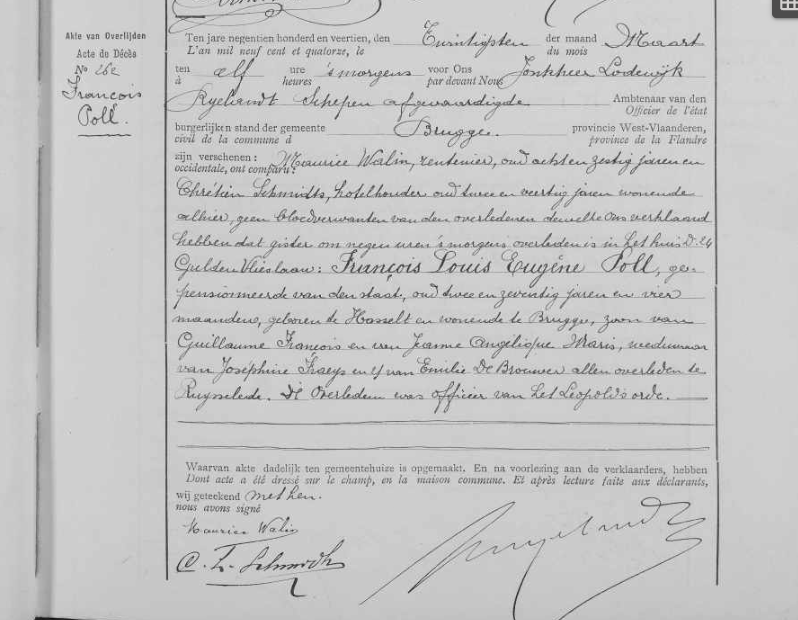 Akte van Overlijden
Acte de Décès
No 262
François
Poll.
Ten jare negentien honderd en veertien, de Twintigsten der maand Maart
L'an mil neuf cent et quatorze, le du mois
ten elf ure 's morgens voor Ons Jonkheer Lodewijk
à heures par devant Nous
Ryelandt Schepen afgevaardigde Ambtenaar van den
Officier de l'état
burgerlijken stand der gemeente Brugge. provincie West-Vlaanderen,
civil de la commune d province de la Flandre
zijn verschenen : Maurice Walin, rentenier, oud acht en zestig jaren en
occidentale, ont comparu :
Chrétien Schmidts, hotelhouder oud twee en veertig jaren wonende
alhier, geen bloedverwanten van den overledenen dewelke ons verklaard
hebben dat gister om negen uren 's morgens overleden is in het huis D. 24
Gulden Vlieslaan : François Louis Eugène Poll, ge-
pensionneerde van den staat, oud twee en zeventig jaren en vier
maanden, geboren te Hasselt en wonende te Brugge, zoon van
Guillaume François en van Jeanne Angelique Maris, weduwnaar
van Joséphine en van Emilie De Brouwer allen overleden te
Ruysselede. De Overleden was officier van het Leopold's orde.
Waarvan akte dadelijk ten gemeentehuize is opgemaakt. En na voorlezing aan de verklaarders, hebben
Dont acte a été dressé sur le champ, en la maison commune. Et après lecture faite aux déclarants,
wij geteekend met hen.
nous avons signé
Maurice Walin